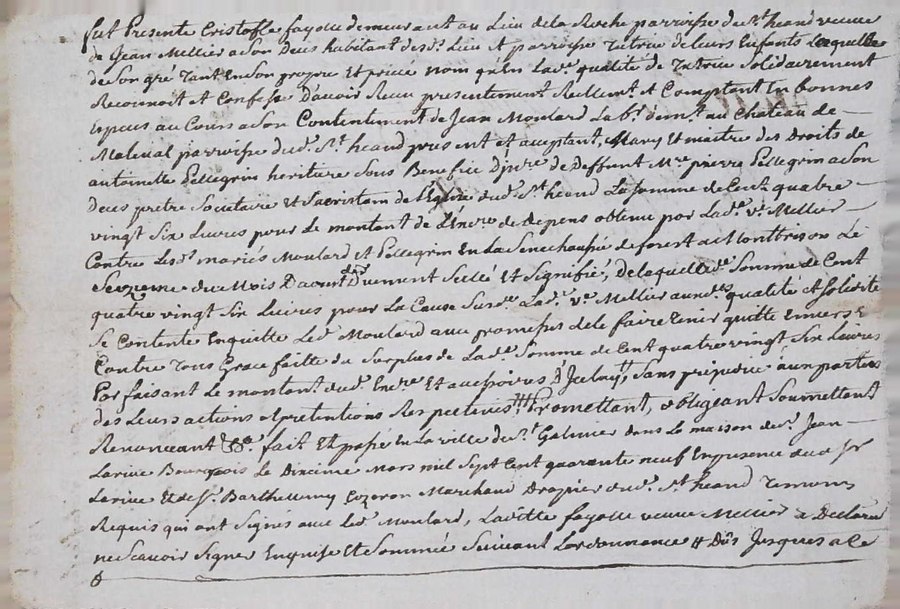 fut Presente Cristofle fayolle demeurant au Lieu de la Roche parroisse du St heand veuve
de Jean Mellier a Son Deces habitant desd. Lieu et parroisse tutrice de leurs Enfants Laquelle
de Son gré tant En Son propre Et privé nom qu'En Lad.e qualité de tutrice Solidairement
Reconnoit et Confesse D'avoir Receu presentement Reellemt. et Comptant En bonnes
Especes au Cours a Son Contentement de Jean Moulard Lab.r dem.t au Chateau de
Maleval parroisse dud. St. heand present et acceptant, Mary Et maitre des Droits de
antoinette Pellegrin heritiere Sous Benefice D'jnre. de Deffunt Mre pierre Pellegrin a Son
Deces prêtre Societaire Et Sacristain de l'Eglise dud. St heand La Somme de Cent quatre
vingt Six Livres pour Le montant de L'Enre. de Depens obtenu par Lad.e v.e Mellier
Contre Lesd. mariés Moulard et Pellegrin En La Senechaussée de forest a Montbrison Le
Seizieme du Mois D'avoust D.er Duement Scellé Et Signifié, De laquelle d.e Somme de Cent
quatre vingt Six Livres pour La Cause Susd.e Lad.e v.e Mellier aux d.es qualité et Solidité
Se Contente Enquitte Led. Moulard avec promesses de le faire tenir quitte Envers &
Contre tous Grace faitte du Surplus de Lad.e Somme de Cent quatre vingt Six Livres
Par faisant le montant dud. Enre. Et accessoires D'Jceluy, Sans prejudice aux parties
des Leurs actions et pretentions Respectives Promettant, obligeant Soumettant
Renonceant &c.a fait Et passé En La ville de St. Galmier dans La maison de Sr. Jean
Larive Bourgeois Le Dixieme Mars mil Sept Cent quarante neuf En presence dud. Sr
Larive Et de Sr. Barthelemy Cozeron Marchand Drapier dud. St heand temoins
Requis qui ont Signés avec led. Moulard, Laditte fayolle veuve Mellier a Declaré
ne Scavoir Signer Enquise Et Sommée Suivant L'ordonnance # Dûs Jusques a ce